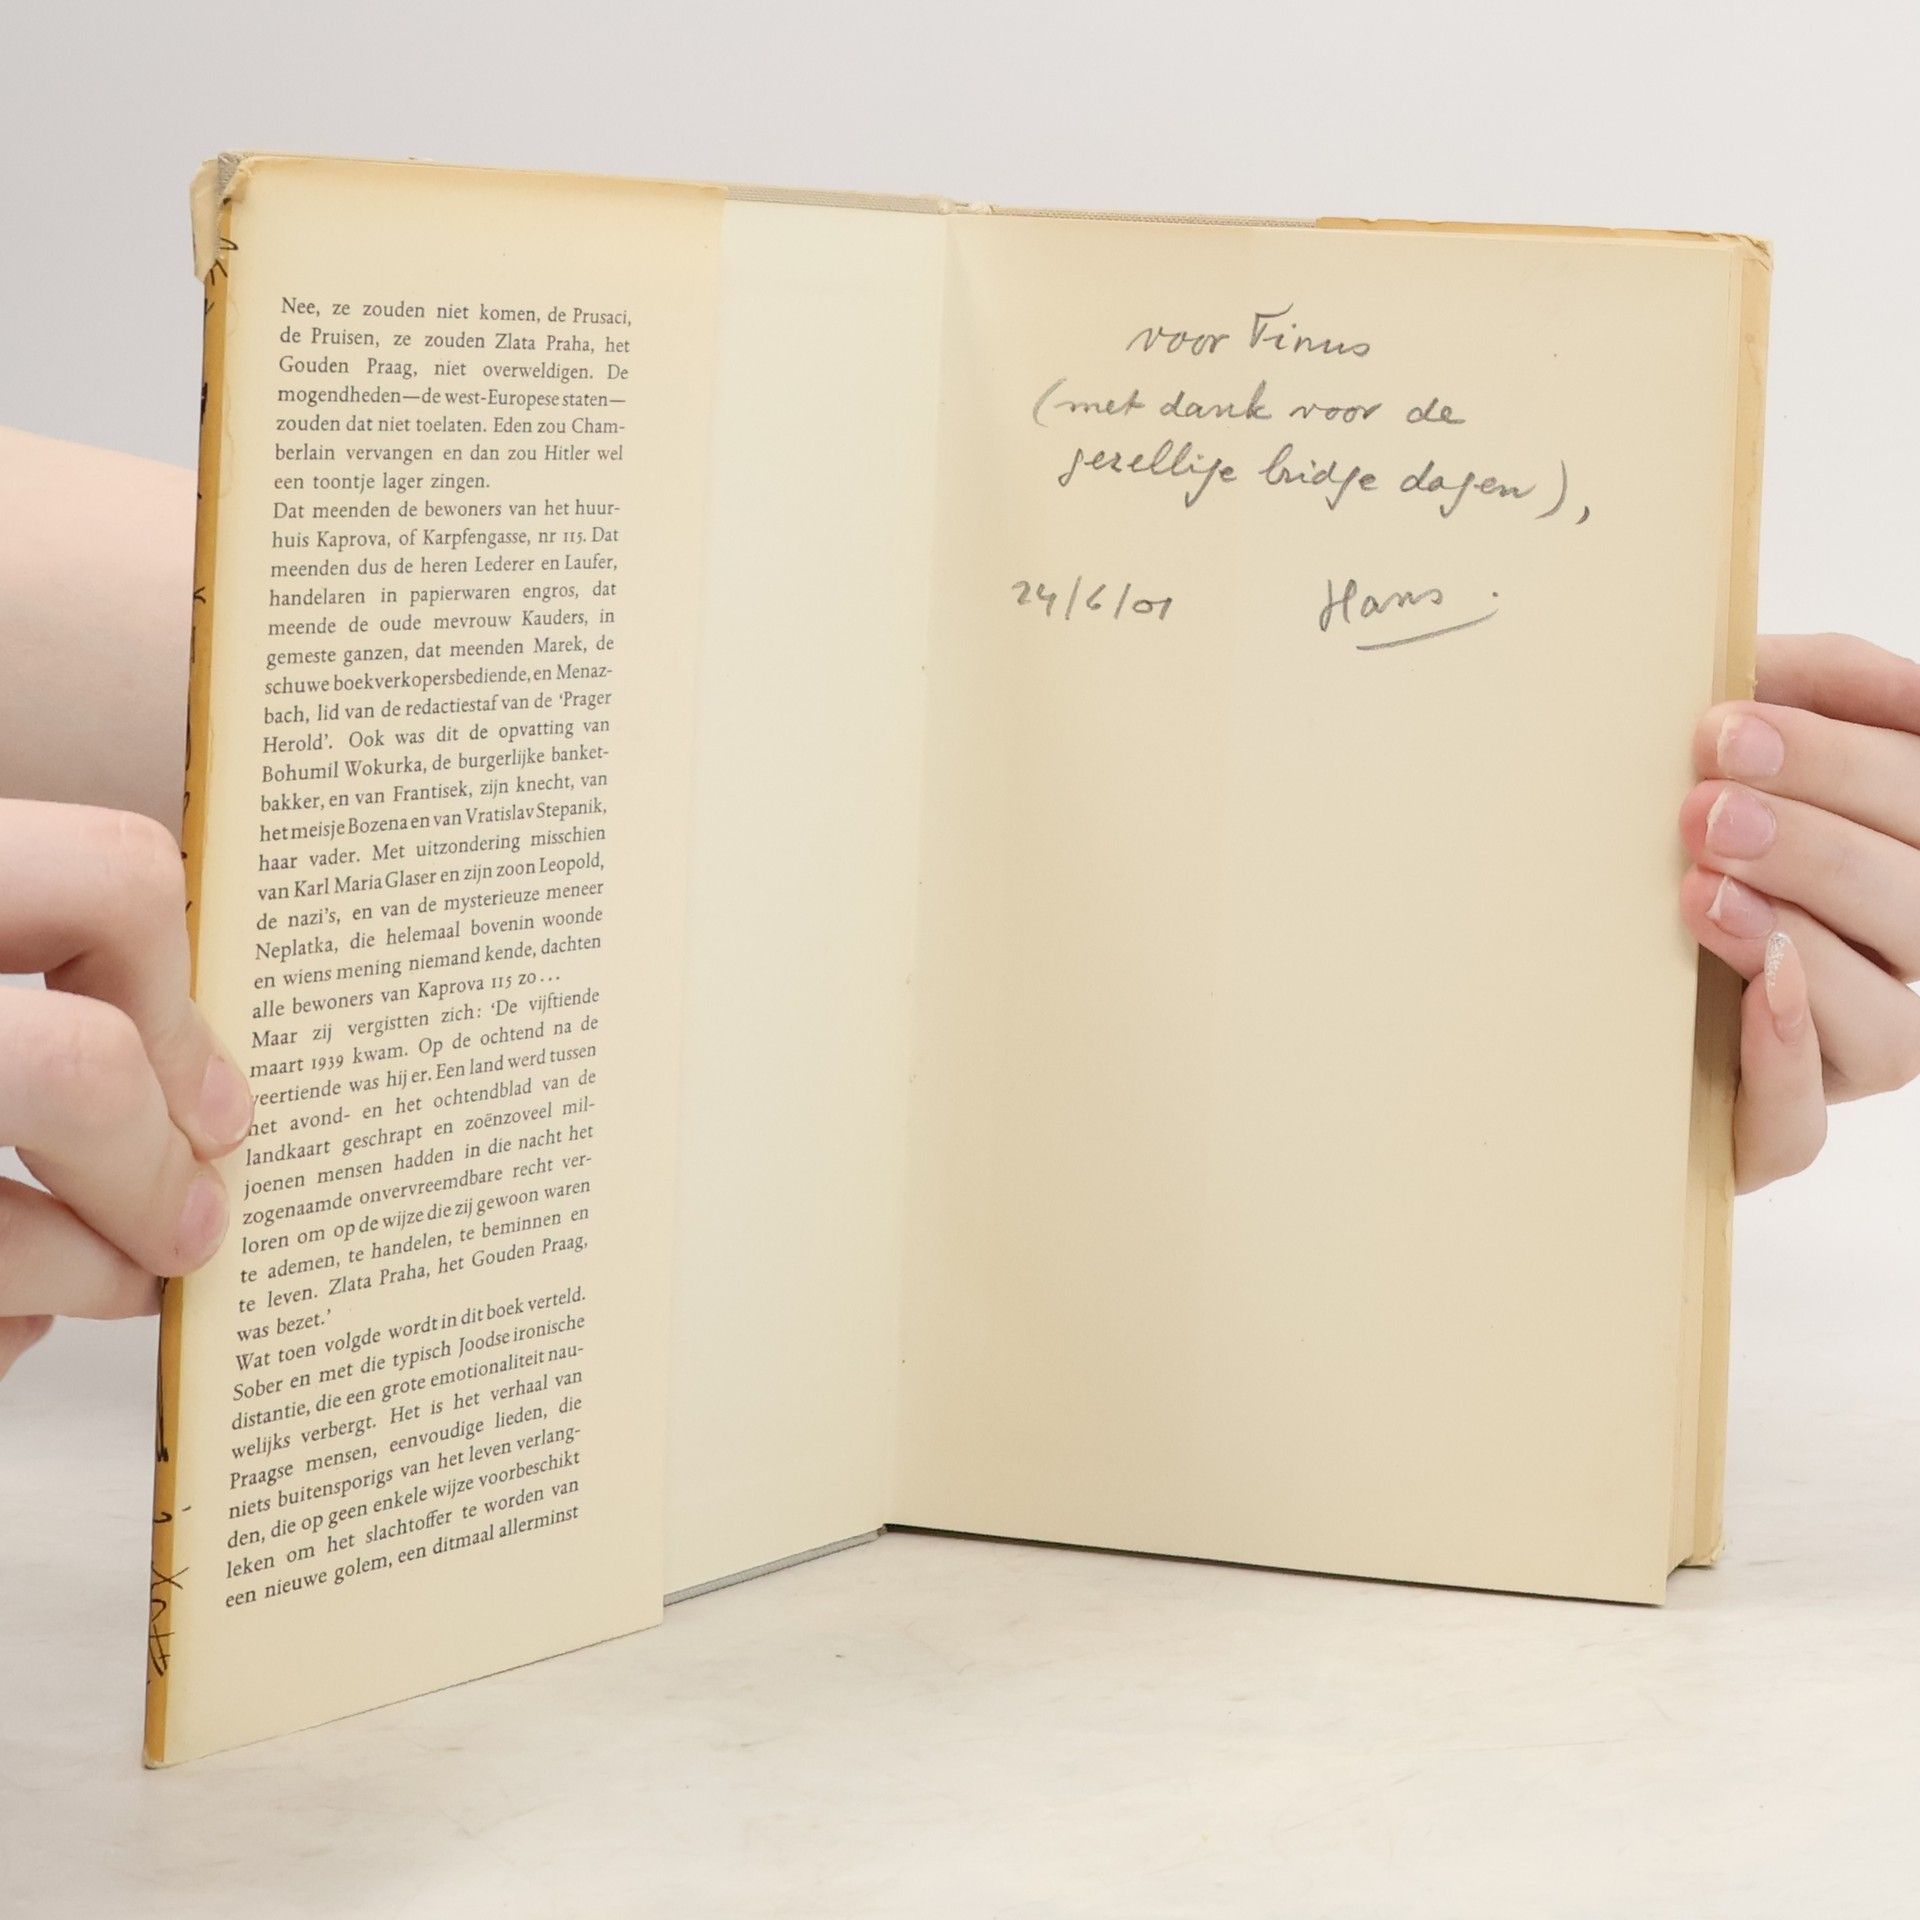 Nee, ze zouden niet komen, de Prusaci,
de Pruisen, ze zouden Zlata Praha, het
Gouden Praag, niet overweldigen. De
mogendheden—de west-Europese staten—
zouden dat niet toelaten. Eden zou Cham-
berlain vervangen en dan zou Hitler wel
een toontje lager zingen.
Dat meenden de bewoners van het huur-
huis Kaprova, of Karpfengasse, nr 115. Dat
meenden dus de heren Lederer en Laufer,
handelaren in papierwaren engros, dat
meende de oude mevrouw Kauders, in
gemeste ganzen, dat meenden Marek, de
schuwe boekverkopersbediende, en Menaz-
bach, lid van de redactiestaf van de ‘Prager
Herold’. Ook was dit de opvatting van
Bohumil Wokurka, de burgerlijke banket-
bakker, en van Frantisek, zijn knecht, van
het meisje Bozena en van Vratislav Stepanik,
haar vader. Met uitzondering misschien
van Karl Maria Glaser en zijn zoon Leopold,
de nazi’s, en van de mysterieuze meneer
Neplatka, die helemaal bovenin woonde
en wiens mening niemand kende, dachten
alle bewoners van Kaprova 115 zo...
Maar zij vergistten zich: ‘De vijftiende
maart 1939 kwam. Op de ochtend na de
veertiende was hij er. Een land werd tussen
het avond- en het ochtendblad van de
landkaart geschrapt en zoënzoveel mil-
joenen mensen hadden in die nacht het
zogenaamde onvervreemdbare recht ver-
loren om op de wijze die zij gewoon waren
te ademen, te handelen, te beminnen en
te leven. Zlata Praha, het Gouden Praag,
was bezet.’
Wat toen volgde wordt in dit boek verteld.
Sober en met die typisch Joodse ironische
distantie, die een grote emotionaliteit nau-
welijks verbergt. Het is het verhaal van
Praagse mensen, eenvoudige lieden, die
niets buitensporigs van het leven verlang-
den, die op geen enkele wijze voorbeschikt
leken om het slachtoffer te worden van
een nieuwe golem, een ditmaal allerminst
voor Tinus
(met dank voor de
gezellige bridge dagen),
24/6/01 Hans.